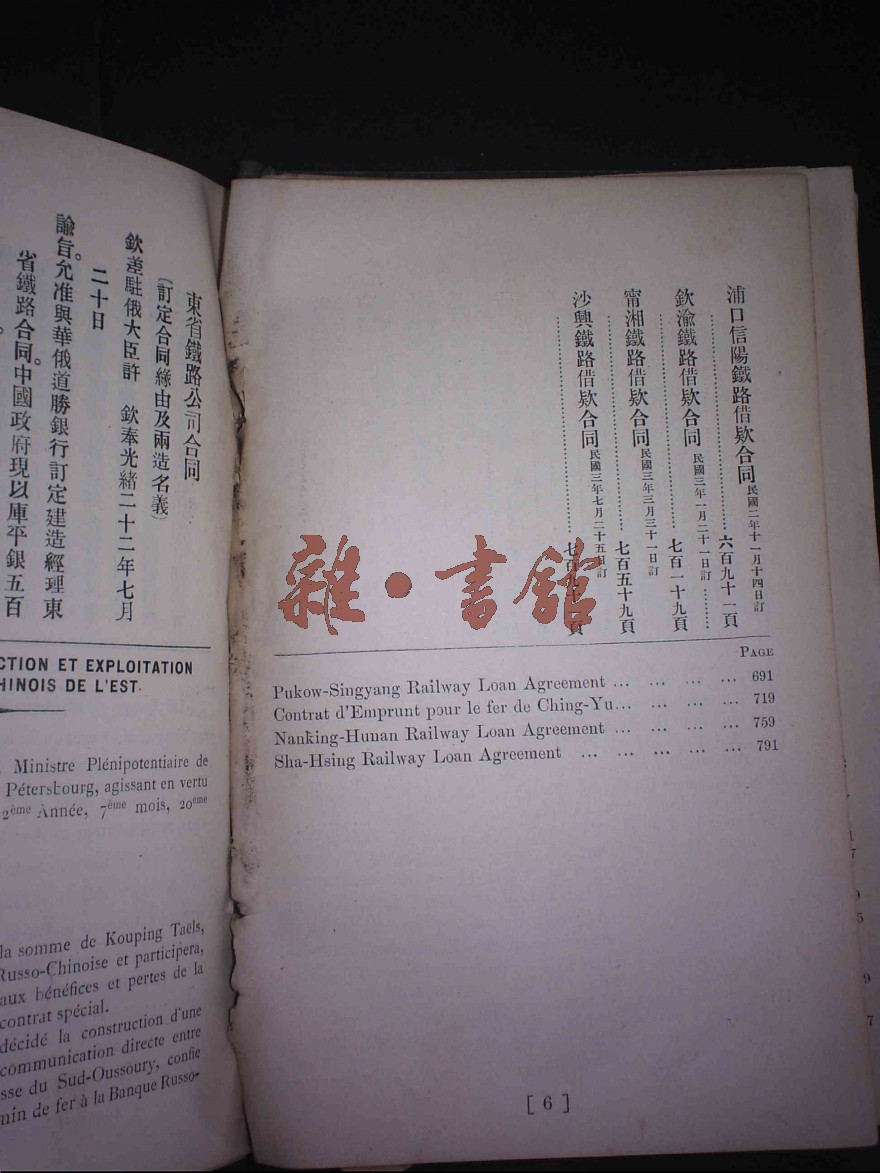 東省鐵路公司合同
(訂定合同緣由及兩造名義)
欽差駐俄大臣許 欽奉光緒二十二年七月
二十日
諭旨。允准與華俄道勝銀行訂定建造經理東
省鐵路合同。中國政府現以庫平銀五百
CTION ET EXPLOITATION
HINOIS DE L'EST.
Ministre Plénipotentiaire de
Pétersbourg, agissant en vertu
2ème Année, 7ème mois, 20ème
la somme de Kouping Taels,
Russo-Chinoise et participera,
aux bénéfices et pertes de la
contrat spécial.
décidé la construction d'une
communication directe entre
sse du Sud-Oussoury, confie
min de fer à la Banque Russo-
浦口信陽鐵路借欵合同 民國二年十一月十四日訂 ……… 六百九十一頁
欽渝鐵路借欵合同 民國三年一月二十一日訂 ……… 七百一十九頁
甯湘鐵路借欵合同 民國三年三月三十一日訂 ……… 七百五十九頁
沙興鐵路借欵合同 民國三年七月二十五日訂 ……… 七百九十一頁
雜·書館
PAGE
Pukow-Singyang Railway Loan Agreement ... ... ... ... 691
Contrat d'Emprunt pour le fer de Ching-Yu... ... ... ... 719
Nanking-Hunan Railway Loan Agreement ... ... ... ... 759
Sha-Hsing Railway Loan Agreement ... ... ... ... ... 791
[ 6 ]